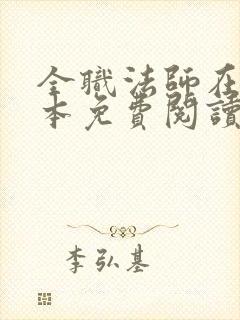 全職法師在
本免費閱讀
李弘基